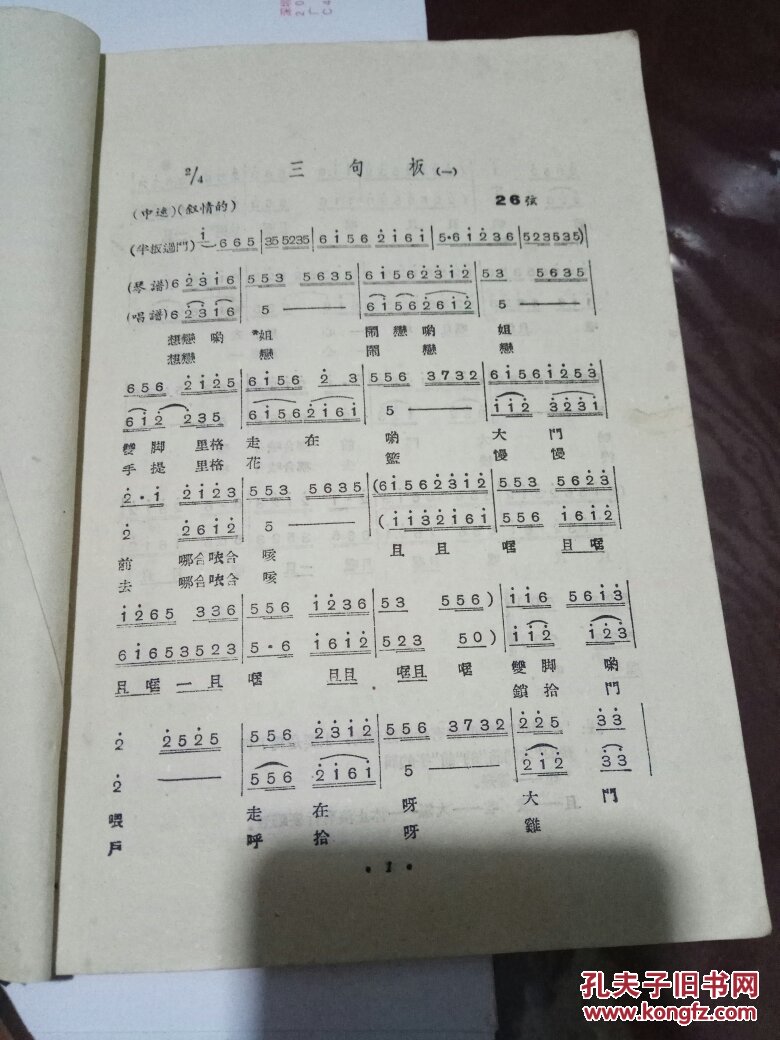 2/4 三句板(一)
(中速)(叙情的) 26弦
(半扳過門) i 6 6 5 | 35 5235 | 6 i 5 6 2 i 6 i | 5·6 i 2 3 6 | 523535)
(琴譜) 6 2 3 i 6 | 5 5 3 5 6 3 5 | 6 i 5 6 2 3 i 2 | 5 3 5 6 3 5
(唱譜) 6 2 3 i 6 | 5 —— | 6 i 5 6 2 6 i 2 | 5 ——
想戀喲 姐 鬧戀喲 姐
想戀 戀 鬧戀 戀
6 5 6 2 i 2 5 | 6 i 5 6 2 3 | 5 5 6 3 7 3 2 | 6 i 5 6 i 2 5 3
6 i 2 2 3 5 | 6 i 5 6 2 i 6 i | 5 —— | i i 2 3 2 3 i
雙脚里格走在 喲 大門
手提里格花 籃 慢慢
2 · i 2 i 2 3 | 5 5 3 5 6 3 5 | (6 i 5 6 2 3 i 2 | 5 5 3 5 6 2 3
2 2 6 i 2 | 5 —— | (i i 3 2 i 6 i | 5 5 6 i 6 i 2
前 哪合哝合 咳 且且 㗂 且㗂
去 哪合哝合 咳
i 2 6 5 3 3 6 | 5 5 6 i 2 3 6 | 5 3 5 5 6 ) | i i 6 5 6 i 3
6 i 6 5 3 5 2 3 | 5 · 6 i 6 i 2 | 5 2 3 5 0 ) | i i 2 i 2 3
且㗂一且 㗂 且且 㗂且 㗂 雙脚 喲
鎖拾 門
2 2 5 2 5 | 5 5 6 2 3 i 2 | 5 5 6 3 7 3 2 | 2 2 5 3 3
2 —— | 5 5 6 2 i 6 i | 5 —— | 2 i 2 3 3
喂 走在 呀 大門
戶 呼拾 呀 雞
·1·
孔夫子旧书网
www.kongfz.com